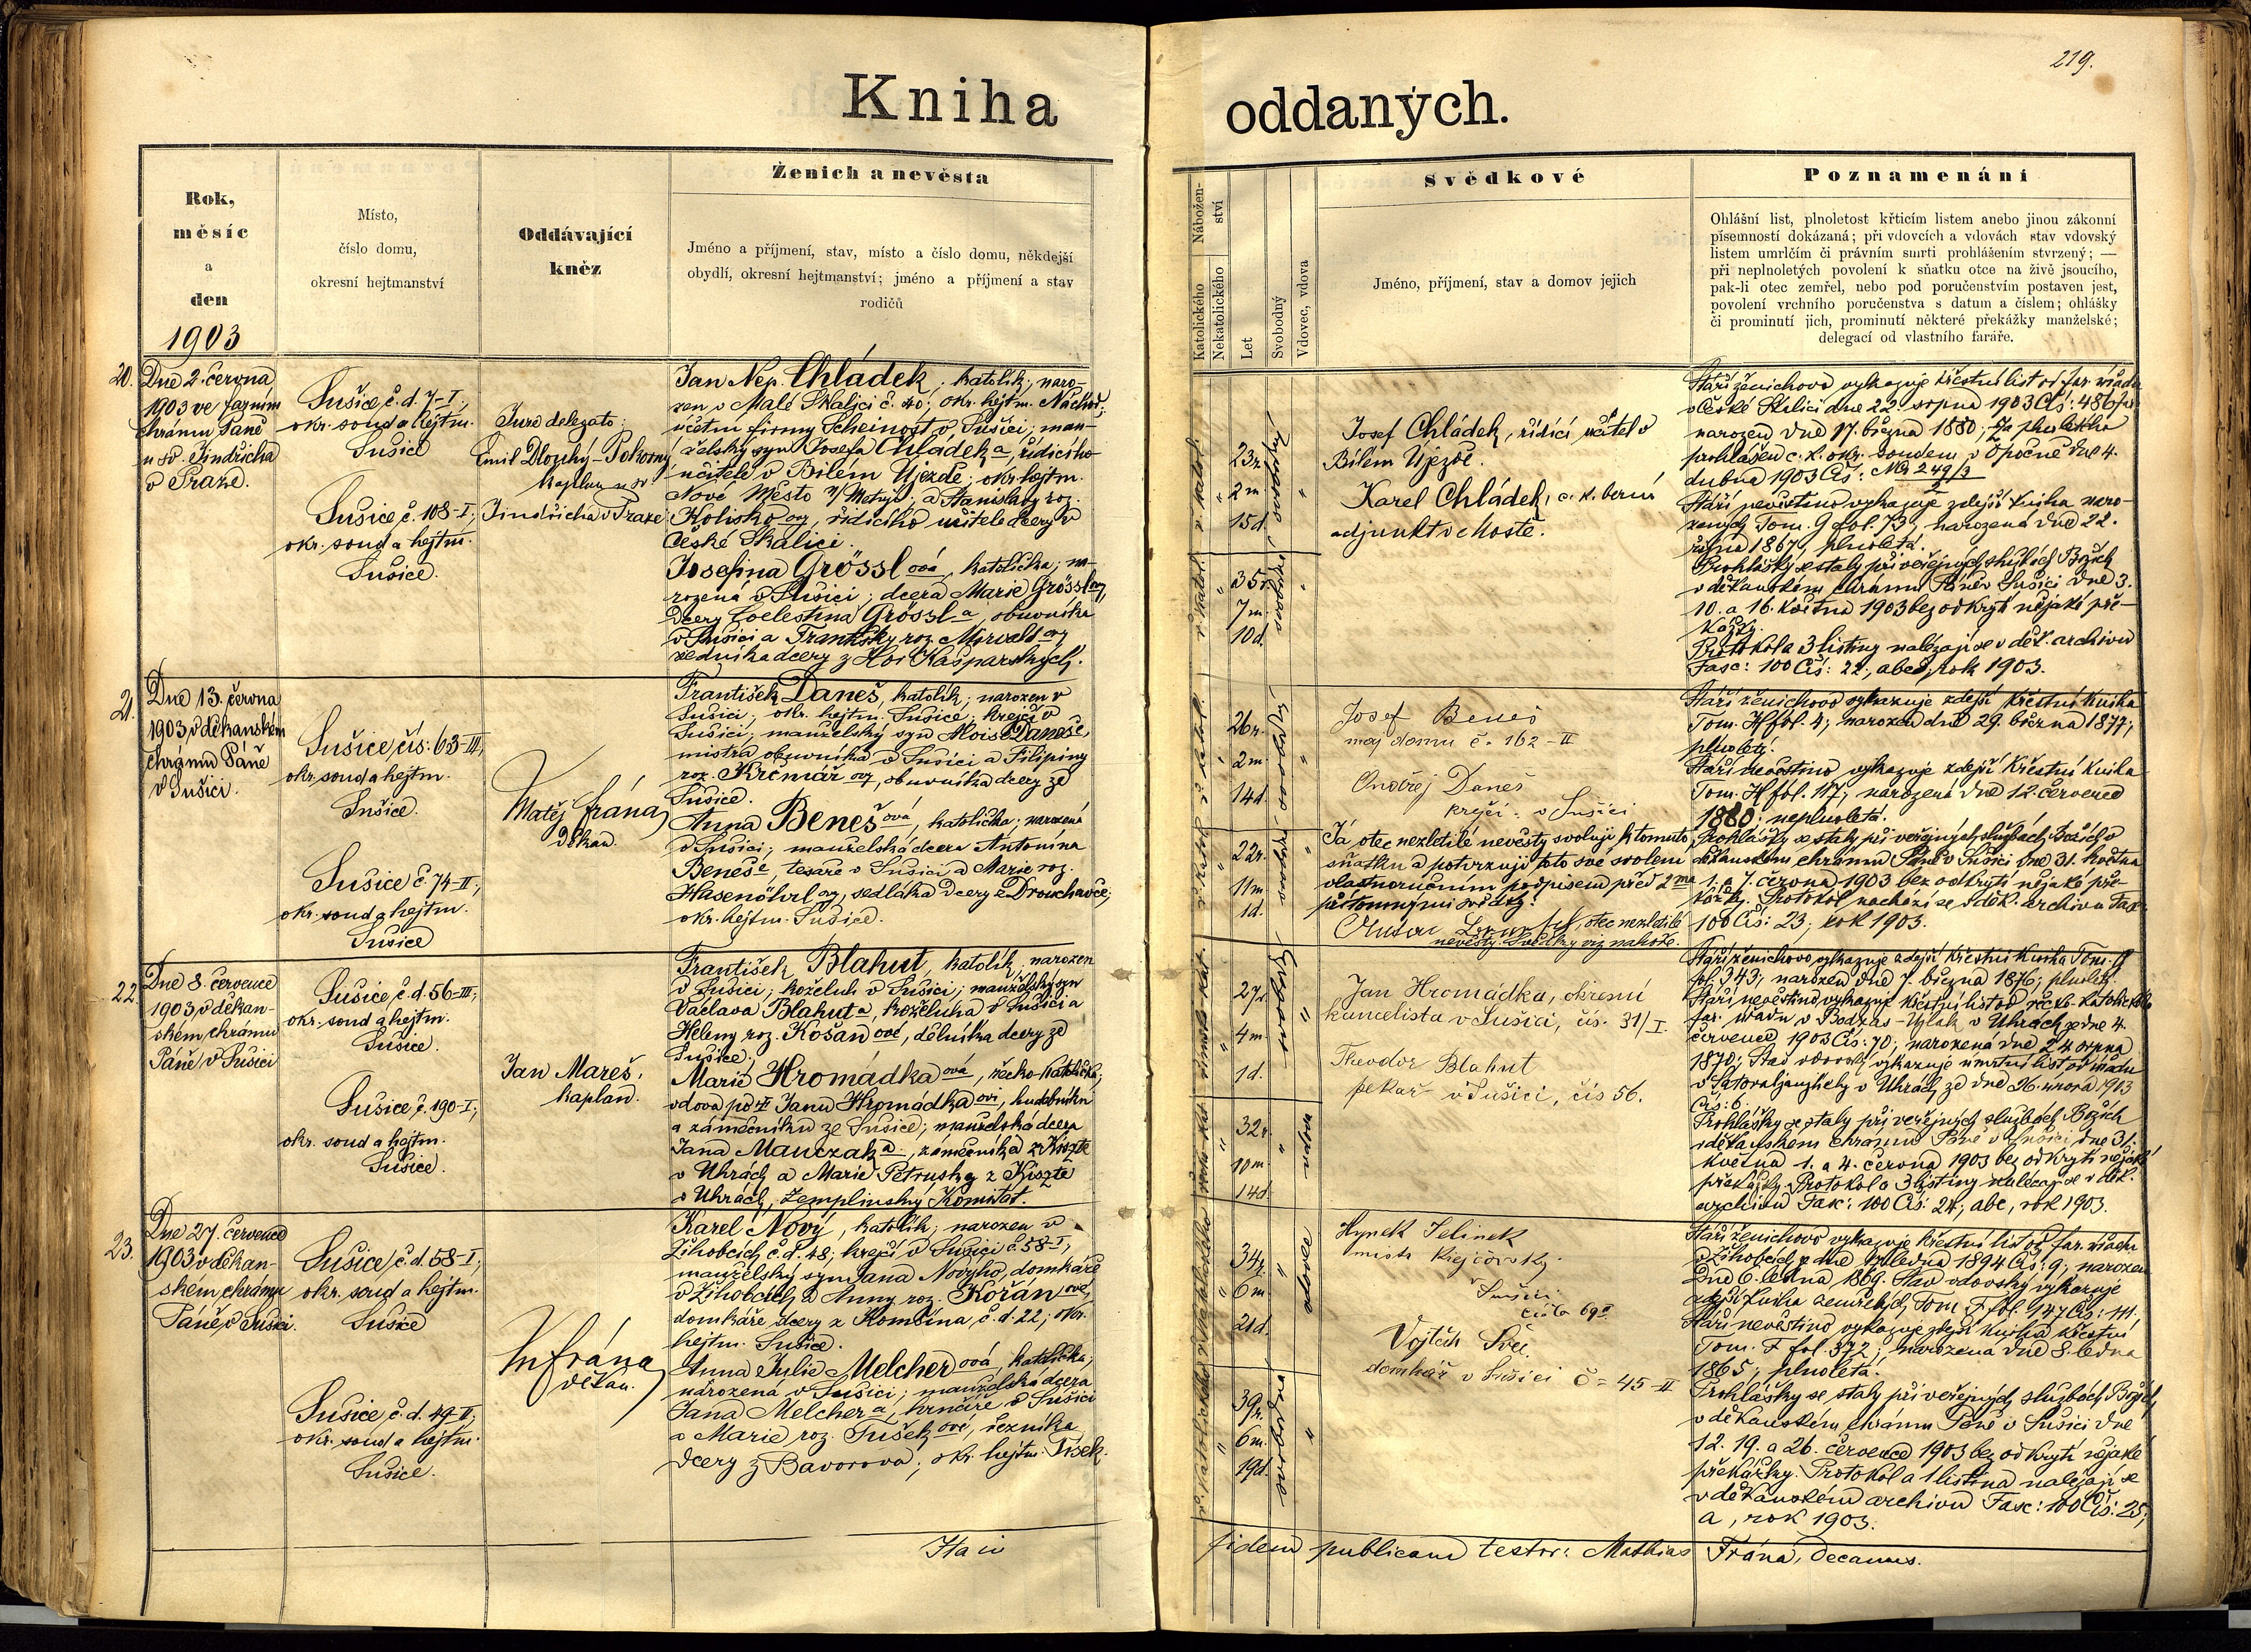 219.
Kniha oddaných.
Rok,
měsíc
a
den
1903
Místo,
číslo domu,
okresní hejtmanství
Oddávající
kněz
Ženich a nevěsta
Jméno a příjmení, stav, místo a číslo domu, někdejší
obydlí, okresní hejtmanství; jméno a příjmení a stav
rodičů
Nábožen-
ství
Katolického
Nekatolického
Let
Svobodný
Vdovec, vdova
Svědkové
Jméno, příjmení, stav a domov jejich
Poznamenání
Ohlášní list, plnoletost křticím listem anebo jinou zákonní
písemností dokázaná; při vdovcích a vdovách stav vdovský
listem umrlčím či právním smrti prohlášením stvrzený; —
při neplnoletých povolení k sňatku otce na živě jsoucího,
pak-li otec zemřel, nebo pod poručenstvím postaven jest,
povolení vrchního poručenstva s datum a číslem; ohlášky
či prominutí jich, prominutí některé překážky manželské;
delegací od vlastního faráře.
20.
Dne 2. června
1903 ve farním
chrámu Páně
u sv. Jindřicha
v Praze.
Sušice, č. d. 7-I.,
okr. soud a hejtm.
Sušice
Sušice č. 108-I;
okr. soud a hejtm.
Sušice.
Jure delegato:
Emil Dlouhý-Pokorný
kaplan u sv.
Jindřicha v Praze
Jan Nep. Chládek, katolík; naro-
zen v Malé Skalici č. 40; okr. hejtm. Náchod;
účetní firmy Scheinost v Sušici; man-
želský syn Josefa Chládka, řídícího
učitele v Bílém Újezdě; okr. hejtm.
Nové Město n/Metují; a Stanislavy roz.
Kolisko ovy, řídícího učitele dcery v
České Skalici.
Josefina Grössl ová, katolička; na-
rozená v Sušici; dcera Marie Grössl ovy,
dcery Coelestina Grössl a, obuvníka
v Sušici a Františky roz. Mirwald ovy
sedníka dcery z Hor Kašparských.
23r.
2m.
15d.
35r.
7m.
10d.
Josef Chládek, řídící učitel v
Bílem Újezdě.
Karel Chládek, c. k. berní
adjunkt v Mostě.
Stáří ženichovo vykazuje křestní list od far. úřadu
v České Skalici dne 22. srpna 1903 Čís: 486,
narozen dne 17. března 1880; za plnoletého
prohlášen c. k. okr. soudem v Opočně dne 4.
dubna 1903 Čís:
Stáří nevěstino vykazuje zdejší kniha naro-
zených Tom. G fol. 73, narozena dne 22.
října 1867, plnoletá.
Prohlášky se staly při veřejných službách Božích
v děkanském chrámu Páně v Sušici dne 3.
10. a 16. května 1903 bez odkrytí nějaké pře-
kážky.
Protokol a 3 listiny nalézají se v děk. archivu
Fasc: 100 Čís: 22, abc, rok 1903.
21.
Dne 13. června
1903 v děkanském
chrámu Páně
v Sušici.
Sušice, čís: 63-III,
okr. soud a hejtm.
Sušice.
Sušice č. 74-II;
okr. soud a hejtm.
Sušice
Matěj Frána,
děkan.
František Daneš, katolík; narozen v
Sušici; okr. hejtm. Sušice; krejčí v
Sušici; manželský syn Aloise Daneše,
mistra obuvníka v Sušici a Filipiny
roz. Krčmář ovy, obuvníka dcery ze
Sušice.
Anna Beneš ová, katolička; narozená
v Sušici; manželská dcera Antonína
Beneše, tesaře v Sušici a Marie roz.
Hasenöhrl ovy, sedláka dcery z Drouchavče;
okr. hejtm. Sušice.
26r.
2m
14d.
22r.
11m
1d.
Josef Beneš
maj. domu č. 162-II
Ondřej Daneš
krejčí v Sušici
Já otec nezletilé nevěsty svoluji k tomuto
sňatku a potvrzuji toto své svolení
vlastnoručním podpisem před 2ma
přítomnými svědky:
otec nezletilé
nevěsty. Svědky viz nahoře.
Stáří ženichovo vykazuje zdejší křestní kniha
Tom. H fol. 4; narozen dne 29. března 1877;
plnoletý.
Stáří nevěstino vykazuje zdejší křestní kniha
Tom. H fol. 117; narozená dne 12. července
1880; neplnoletá.
Prohlášky se staly při veřejných službách Božích v
děkanském chrámu Páně v Sušici dne 31. května
1. a 7. června 1903 bez odkrytí nějaké pře-
kážky. Protokol nachází se v děk. archivu Fasc.
100 Čís: 23; rok 1903.
22.
Dne 8. července
1903 v děkan-
ském chrámu
Páně v Sušici
Sušice, č. d. 56-III;
okr. soud a hejtm.
Sušice.
Sušice, č. 190-I;
okr. soud a hejtm.
Sušice.
Jan Mareš,
kaplan.
František Blahut, katolík, narozen
v Sušici; koželuh v Sušici; manželský syn
Václava Blahuta, koželuha v Sušici a
Heleny roz. Košan ové, dělníka dcery ze
Sušice.
Marie Hromádka ová, řecko-katolička,
vdova po † Janu Hromádka ovi, hudebníku
a zámečníku ze Sušice; manželská dcera
Jana Mauczak a, zámečníka z Kiszte
v Uhrách a Marie Petrusky z Kiszte
v Uhrách, Zemplinský Komitat.
27r.
4m
1d.
32r.
10m
14d.
Jan Hromádka, okresní
kancelista v Sušici, čís. 31/I
Theodor Blahut
pekař v Sušici, čís 56.
Stáří ženichovo vykazuje zdejší křestní kniha Tom. G
fol. 343; narozen dne 7. března 1876; plnoletý.
Stáří nevěstino vykazuje křestní list od řecko-katolického
far. úřadu v Bodzás-Ujlak v Uhrách ze dne 4.
července 1903 Čís: 70; narozena dne 24 srpna
1870; Stav vdovský vykazuje úmrtní list od úřadu
v Sátoraljaujhely v Uhrách ze dne 26. února 1903
Čís: 6.
Prohlášky se staly při veřejných službách Božích
v děkanském chrámu Páně v Sušici dne 31.
května 1. a 4. června 1903 bez odkrytí nějaké
překážky. Protokol a 3 listiny nalézají se v děk.
archivu Fasc: 100 Čís: 24; abc, rok 1903.
23.
Dne 27. července
1903 v děkan-
ském chrámu
Páně v Sušici.
Sušice, č. d. 58-I,
okr. soud a hejtm.
Sušice
Sušice č. d. 49-II;
okr. soud a hejtm.
Sušice.
M Frána,
děkan.
Karel Nový, katolík; narozen v
Žihobcích č. d. 48; krejčí v Sušici č. 58-I,
manželský syn Jana Nového, domkáře
v Žihobcích a Anny roz. Kořán ové,
domkáře dcery z Kombina, č. d. 22; okr.
hejtm. Sušice.
Anna Julie Melcher ová, katolička,
narozená v Sušici; manželská dcera
Jana Melcher a, hrnčíře v Sušici
a Marie roz. Sušek ové, řezníka
dcery z Bavorova; okr. hejtm. Písek.
34r.
6m
21d.
39r.
6m.
19d.
Hynek Jelinek
mistr krejčovský
Sušici
číslo 69
Vojtěch Švec
domkář v Sušici č= 45-II
Stáří ženichovo vykazuje křestní list od far. úřadu
v Žihobcích z dne ledna 1894 Čís: 9; narozen
dne 6. ledna 1869. Stav vdovský vykazuje
zdejší kniha zemřelých Tom. F fol. 147 Čís: 111.
Stáří nevěstino vykazuje zdejší kniha křestní
Tom. F fol. 372; narozena dne 8. ledna
1865; plnoletá.
Prohlášky se staly při veřejných službách Božích
v děkanském chrámu Páně v Sušici dne
12. 19. a 26. července 1903 bez odkrytí nějaké
překážky. Protokol a 1 listina nalézají se
v děkanském archivu Fasc: 100 Čís: 25;
a, rok 1903.
Ita in fidem publicam testor: Mathias Frána, decanus.